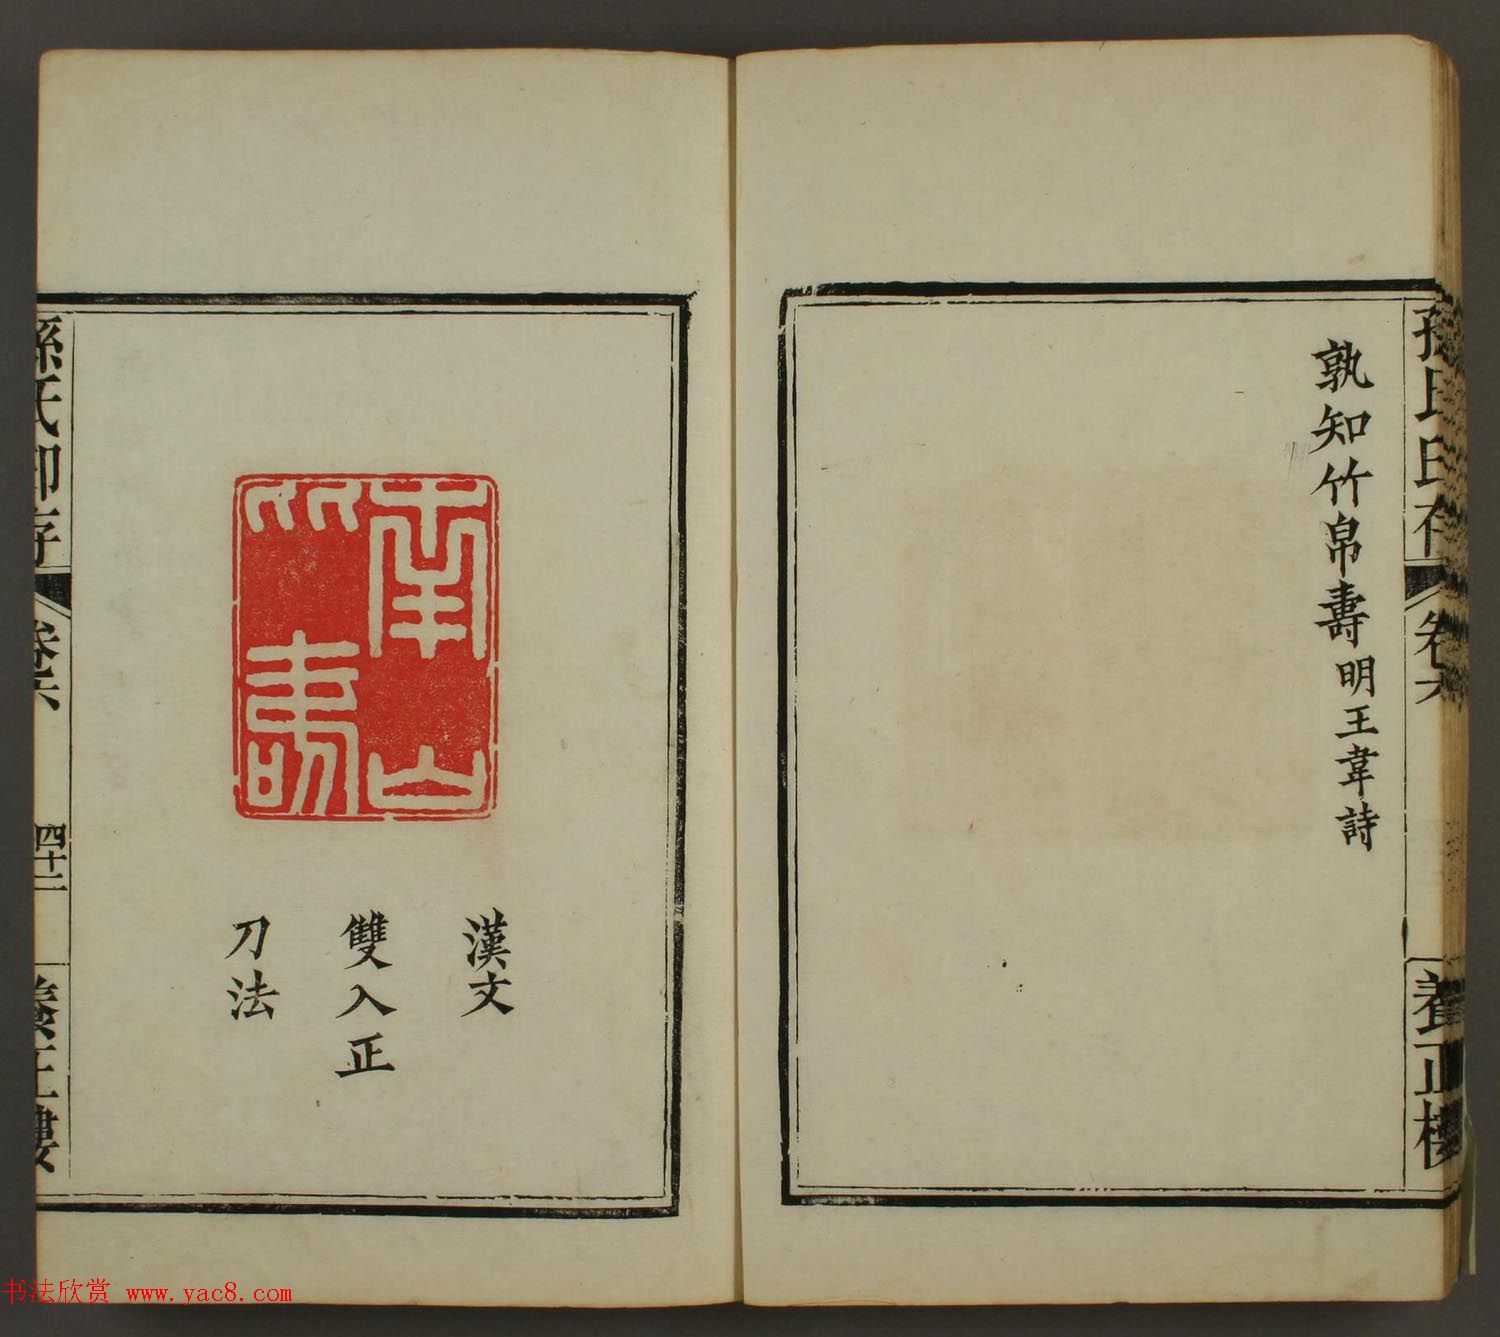 孫氏印存
卷六
養正樓
孰知竹帛壽明王韋詩
南山
竹書
漢文
雙入正
刀法
孫氏印存
卷六
四十二
養正樓
书法欣赏 www.yac8.com